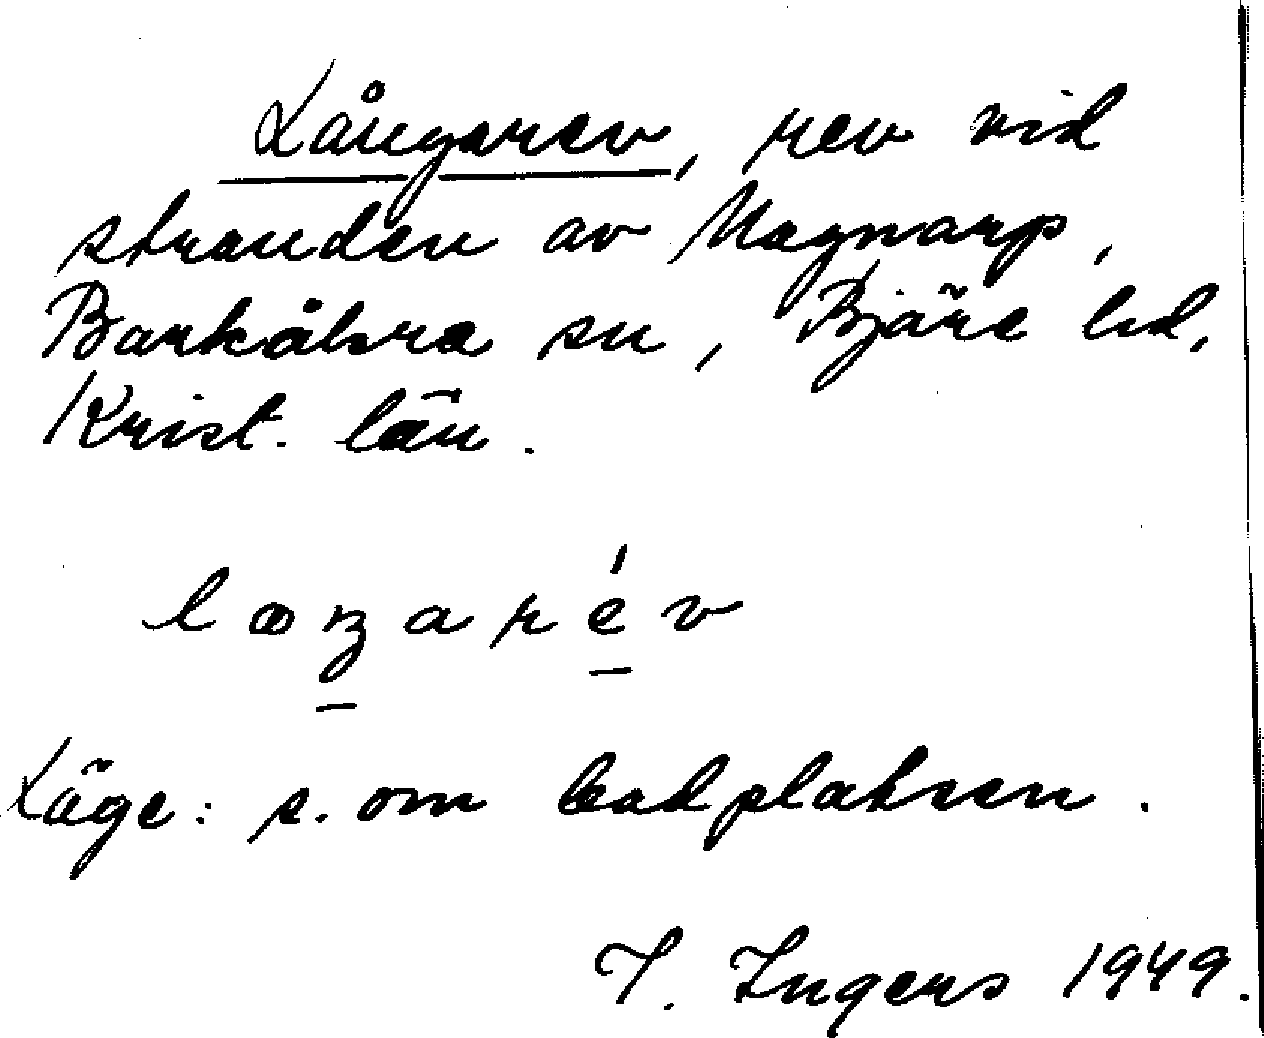 Långarev, rev vid
stranden av Magnarp,
Barkåkra sn, Bjäre hd,
Krist. län.
Läge: s. om badplatsen.
I. Ingers 1949.